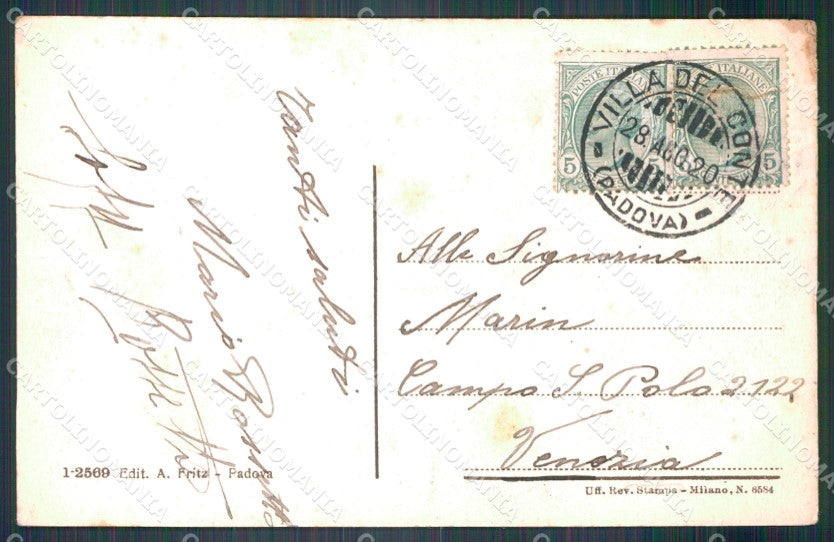 Tanti saluti
Mario
POSTE ITALIANE
5 5 5
VILLA DEL CONTE
28.AGO.20
(PADOVA)
Alle Signorine
Marin
Campo S. Polo 2122
Venezia
1-2569 Edit. A. Fritz - Padova
Uff. Rev. Stampa - Milano, N. 6584
CARTOLINOMANIA